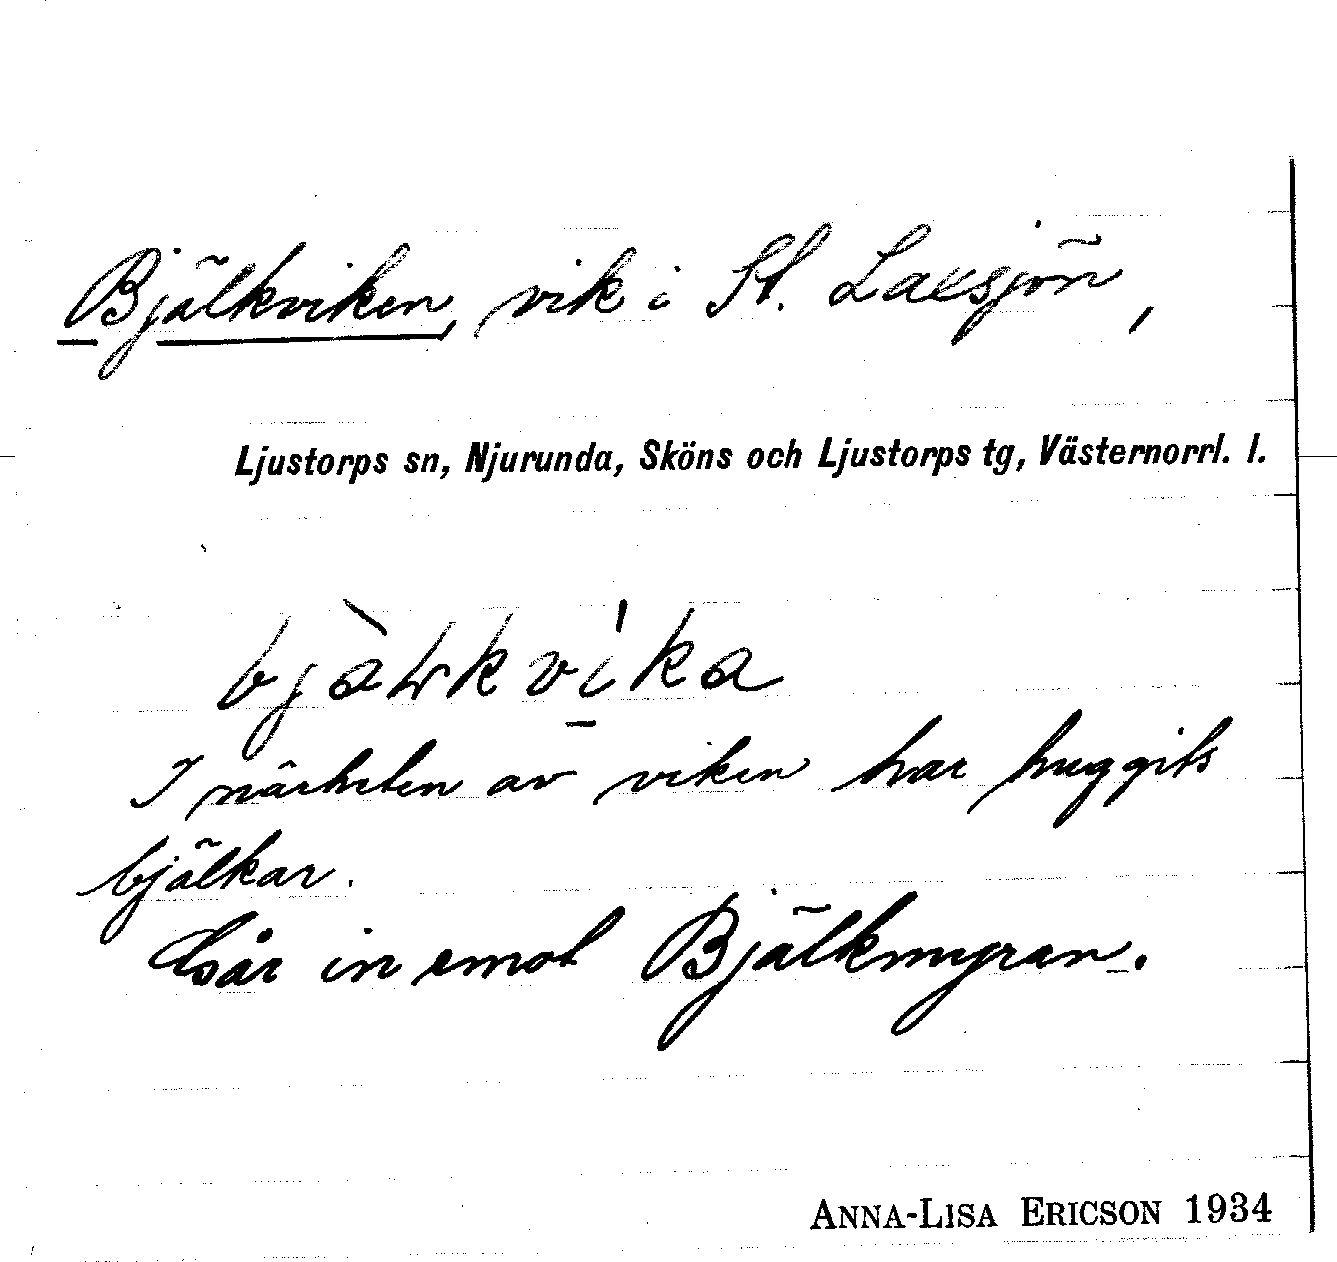 Bjälkviken, vik i St. Laxsjön,
Ljustorps sn, Njurunda, Sköns och Ljustorps tg, Västernorrl. l.
I närheten av viken har huggits
bjälkar.
Går in emot Bjälkmyran.
ANNA-LISA ERICSON 1934